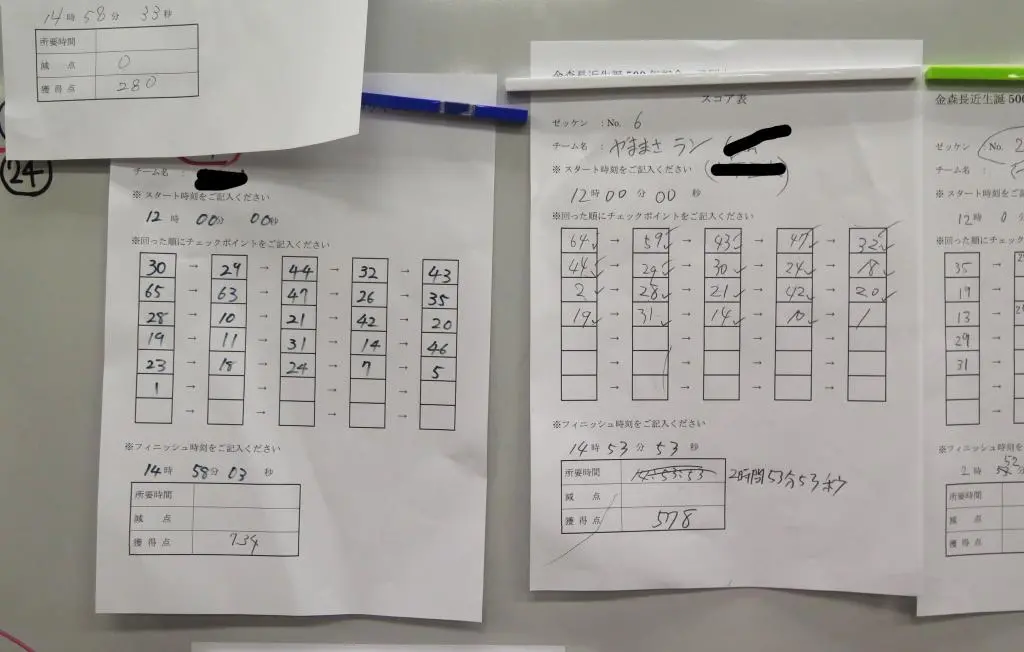 14時 58分 33秒
所要時間
減 点 0
獲得点 280
24
チーム名 :
※ スタート時刻をご記入ください
12時 00分 00秒
※回った順にチェックポイントをご記入ください
30 → 29 → 44 → 32 → 43
65 → 63 → 47 → 26 → 35
28 → 10 → 21 → 42 → 20
19 → 11 → 31 → 14 → 46
23 → 18 → 24 → 7 → 5
1 → → → →
→ → → →
※フィニッシュ時刻をご記入ください
14時 58分 03秒
所要時間
減 点
獲得点 734
金森長近生誕500年
スコア表
ゼッケン :No. 6
チーム名 : やままさ ラン
※ スタート時刻をご記入ください
12時00分00秒
※回った順にチェックポイントをご記入ください
64 → 59 → 43 → 47 → 32
44 → 29 → 30 → 24 → 18
2 → 28 → 21 → 42 → 20
19 → 31 → 14 → 10 → 1
→ → → →
→ → → →
→ → → →
※フィニッシュ時刻をご記入ください
14時53分53秒
所要時間 14:53:53 2時間53分53秒
減 点
獲得点 578
金森長近生誕500
ゼッケン :No. 2
チーム名 :
※ スタート時刻を
12時 0分
※回った順にチェ
35
19
13
29
31
※フィニッシュ時刻を
2時 52分
所要時間
減 点
獲得点